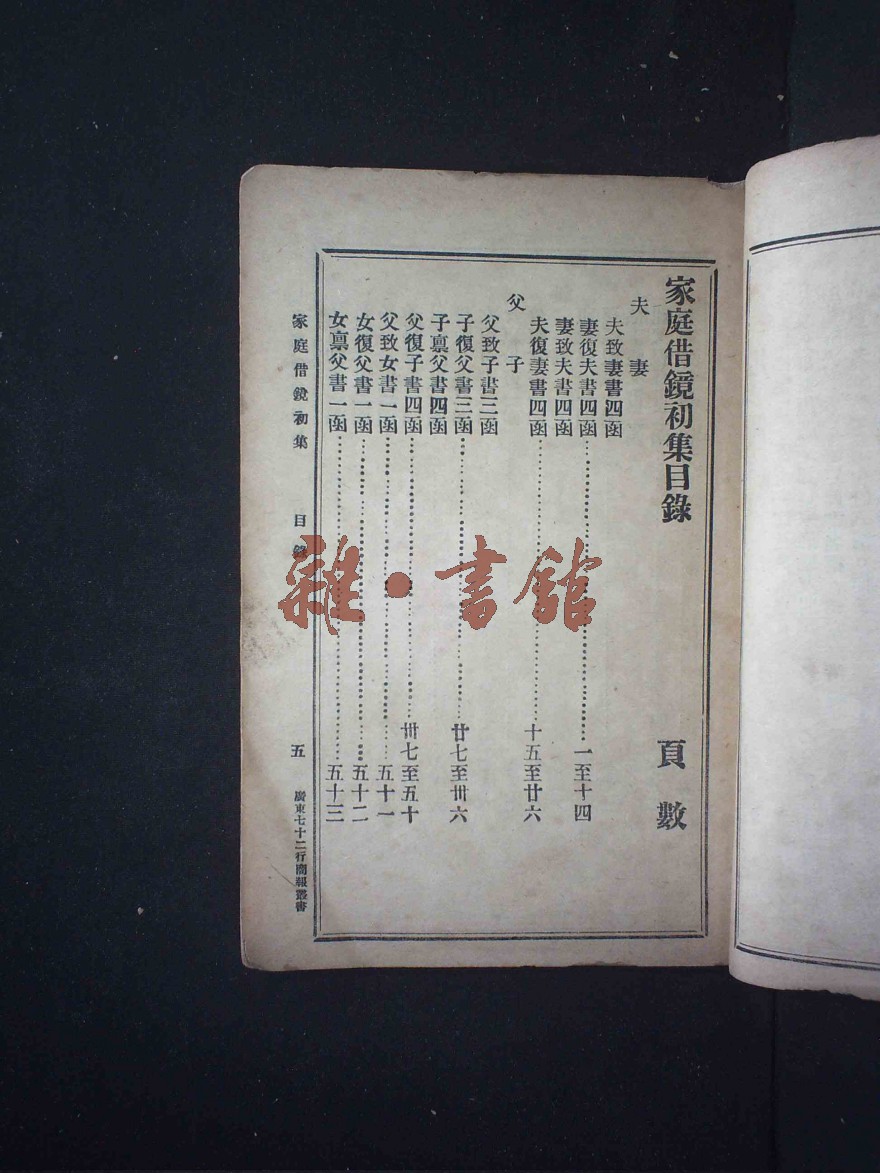 家庭借鏡初集目錄 頁數
夫妻
夫致妻書四函
妻復夫書四函 一至十四
妻致夫書四函
夫復妻書四函 十五至廿六
父子
父致子書三函
子復父書三函 廿七至卅六
子禀父書四函
父復子書四函 卅七至五十
父致女書一函 五十一
女復父書一函 五十二
女禀父書一函 五十三
家庭借鏡初集 目錄 五 廣東七十二行商報叢書
雜·書館